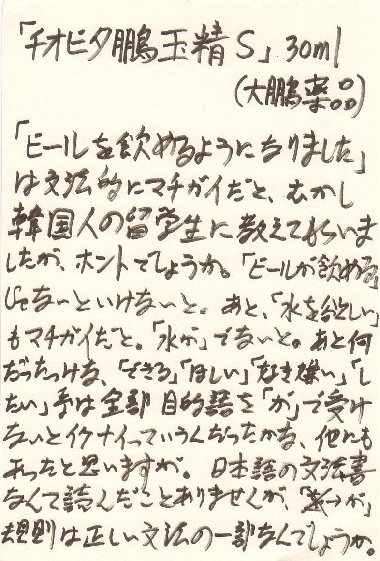 「チオビタ鵬玉精S」30ml
(大鵬薬品)
「ビールを飲めるようになりました」
は文法的にマチガイだと、むかし
韓国人の留学生に教えてもらいま
したが、ホントでしょうか。「ビールが飲める」
じゃないといけないと。あと、「水を欲しい」
もマチガイだと。「水が」でないと。あと何
だったっけな、「できる」「ほしい」「好き嫌い」「し
たい」等は全部目的語を「が」で受け
ないとイケナイっていうんだったかな、他にも
あったと思いますが。日本語の文法書
なんて読んだことありませんが、「を→が」
規則は正しい文法の一部なんでしょうか。